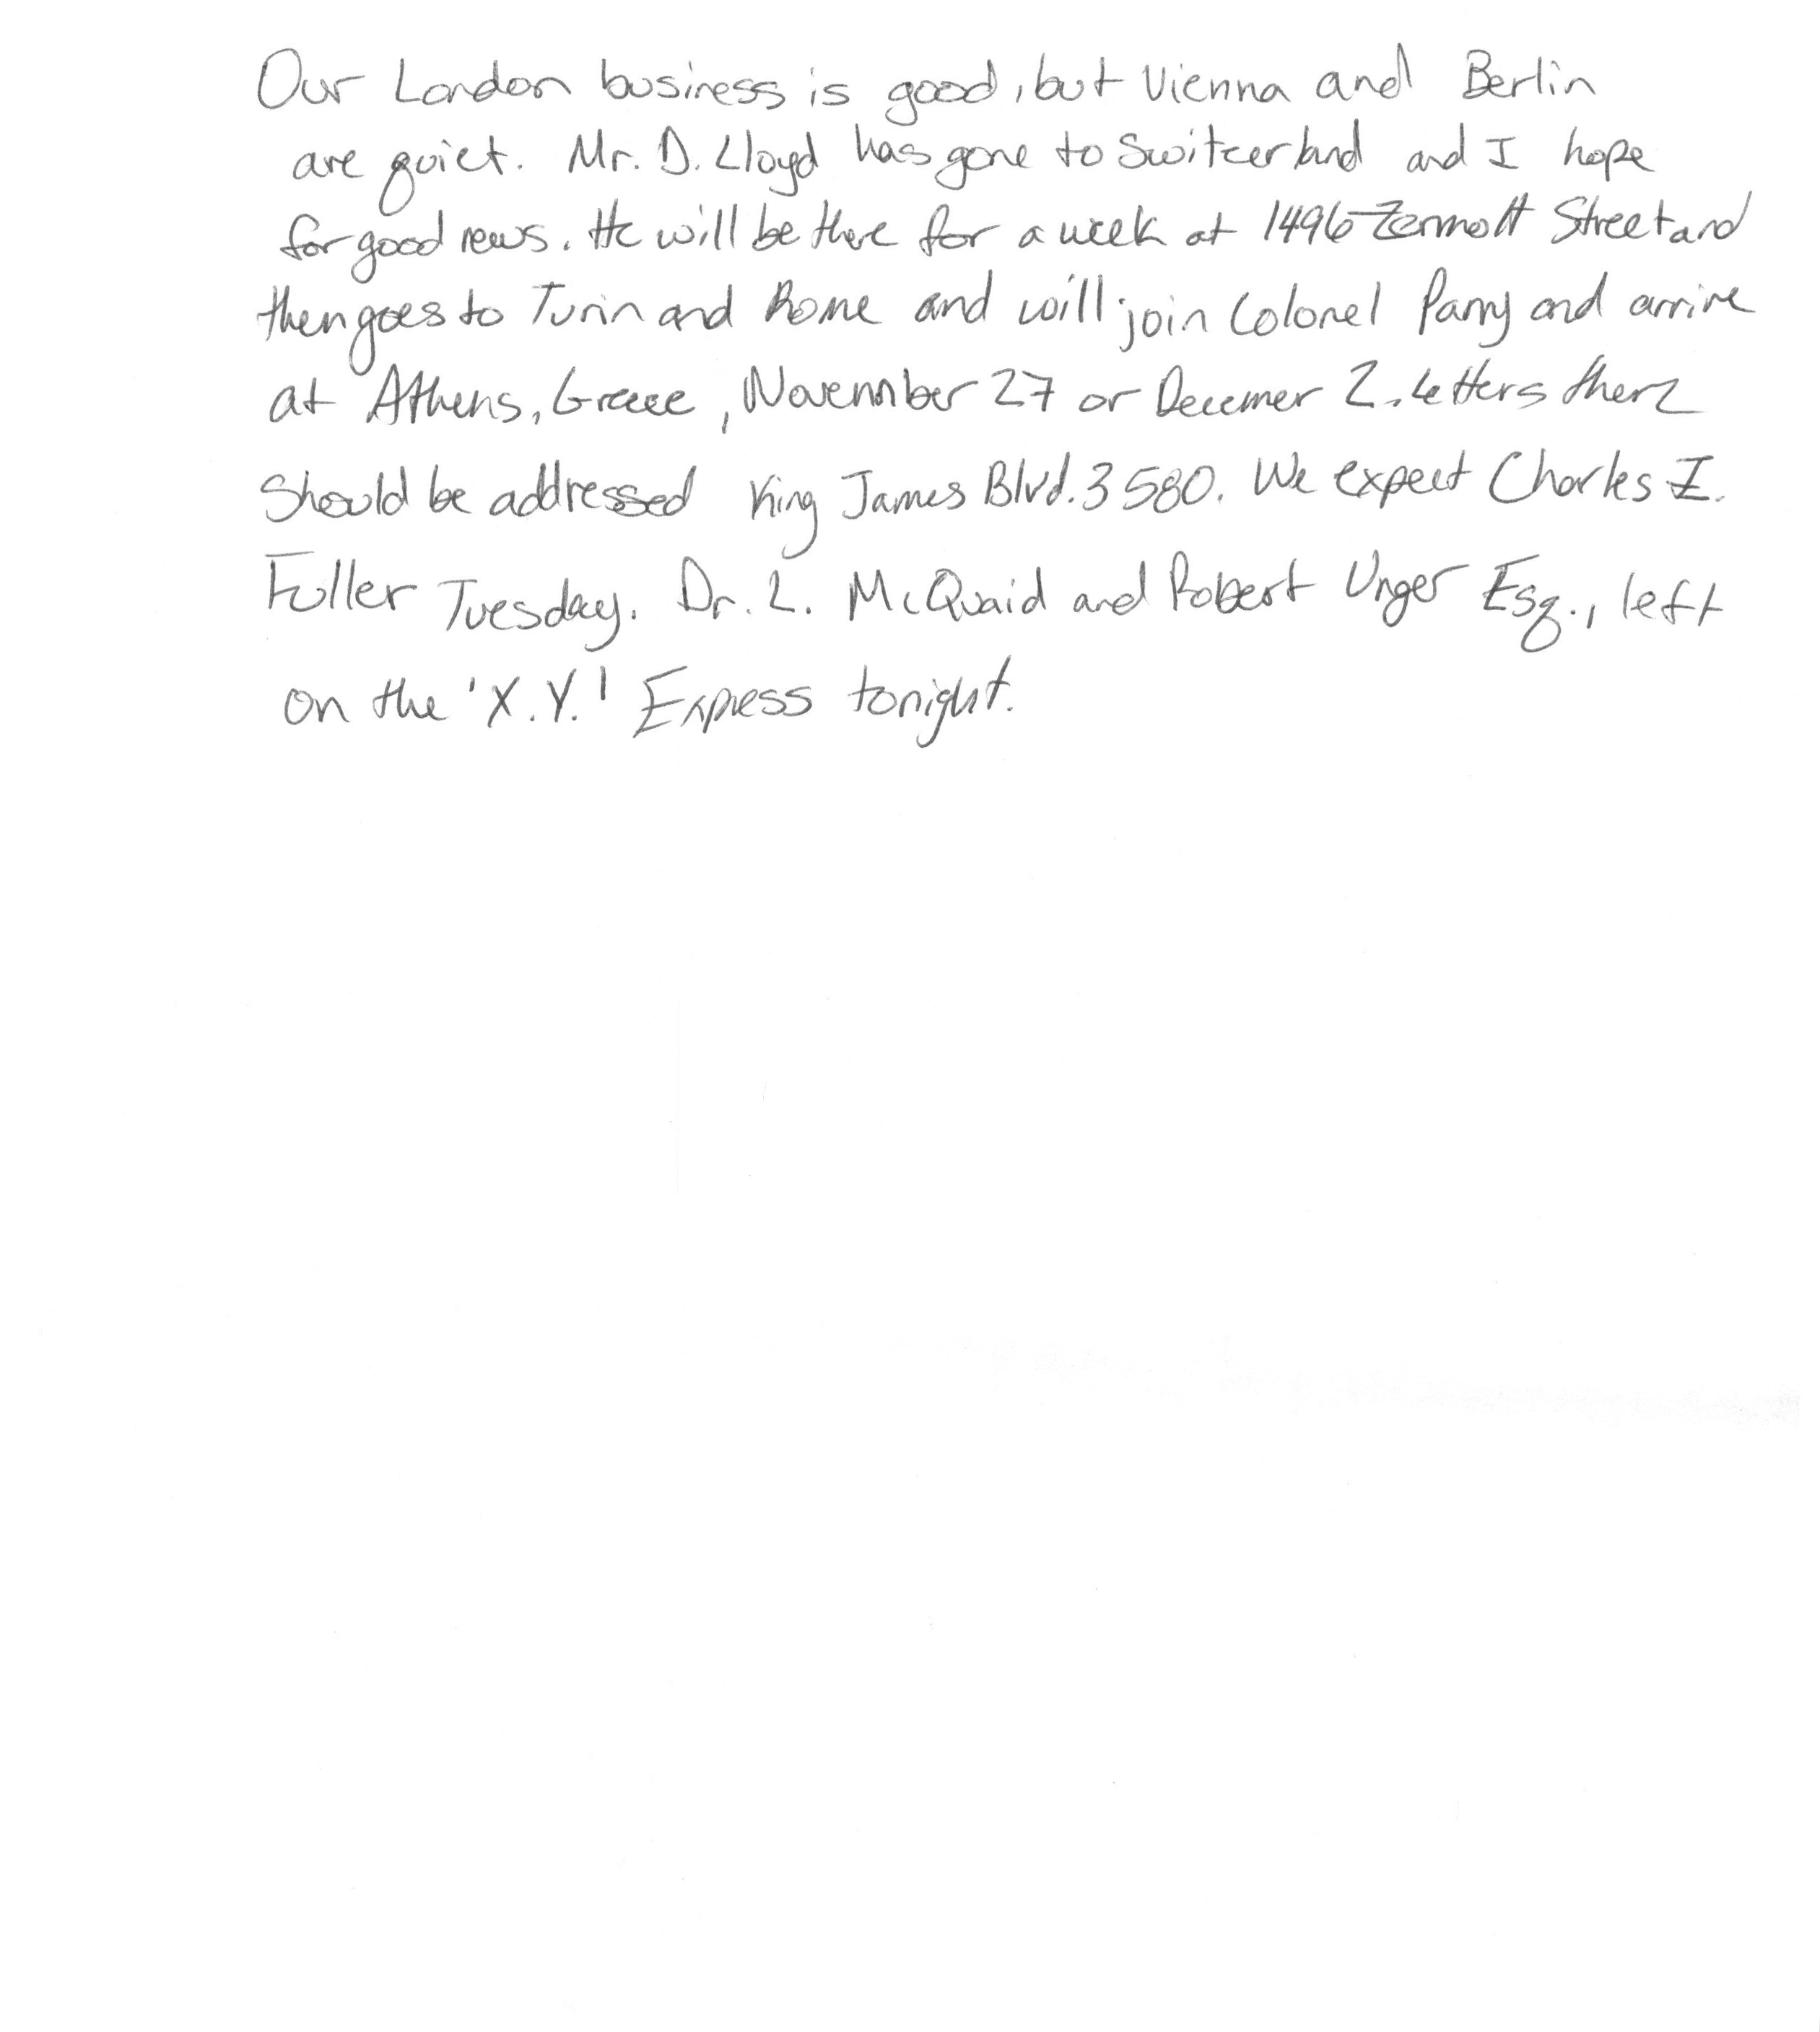 Our London business is good, but Vienna and Berlin
are quiet. Mr. D. Lloyd has gone to Switzerland and I hope
for good news. He will be there for a week at 1496 Zermott Street and
then goes to Turin and Rome and will join Colonel Parry and arrive
at Athens, Greece, November 27 or Decemer 2. Letters there
should be addressed King James Blvd. 3580. We expect Charles Z.
Fuller Tuesday. Dr. L. McQuaid and Robert Unger Esq., left
on the 'X.Y.' Express tonight.